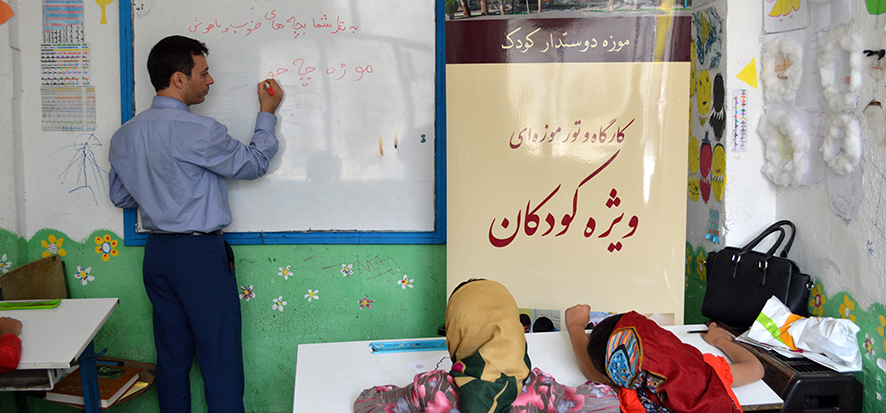 به نظر شما بچه های خوب و باهوش
موزه چه جو
موزه دوستدار کودک
کارگاه و تور موزه ای
ویژه کودکان